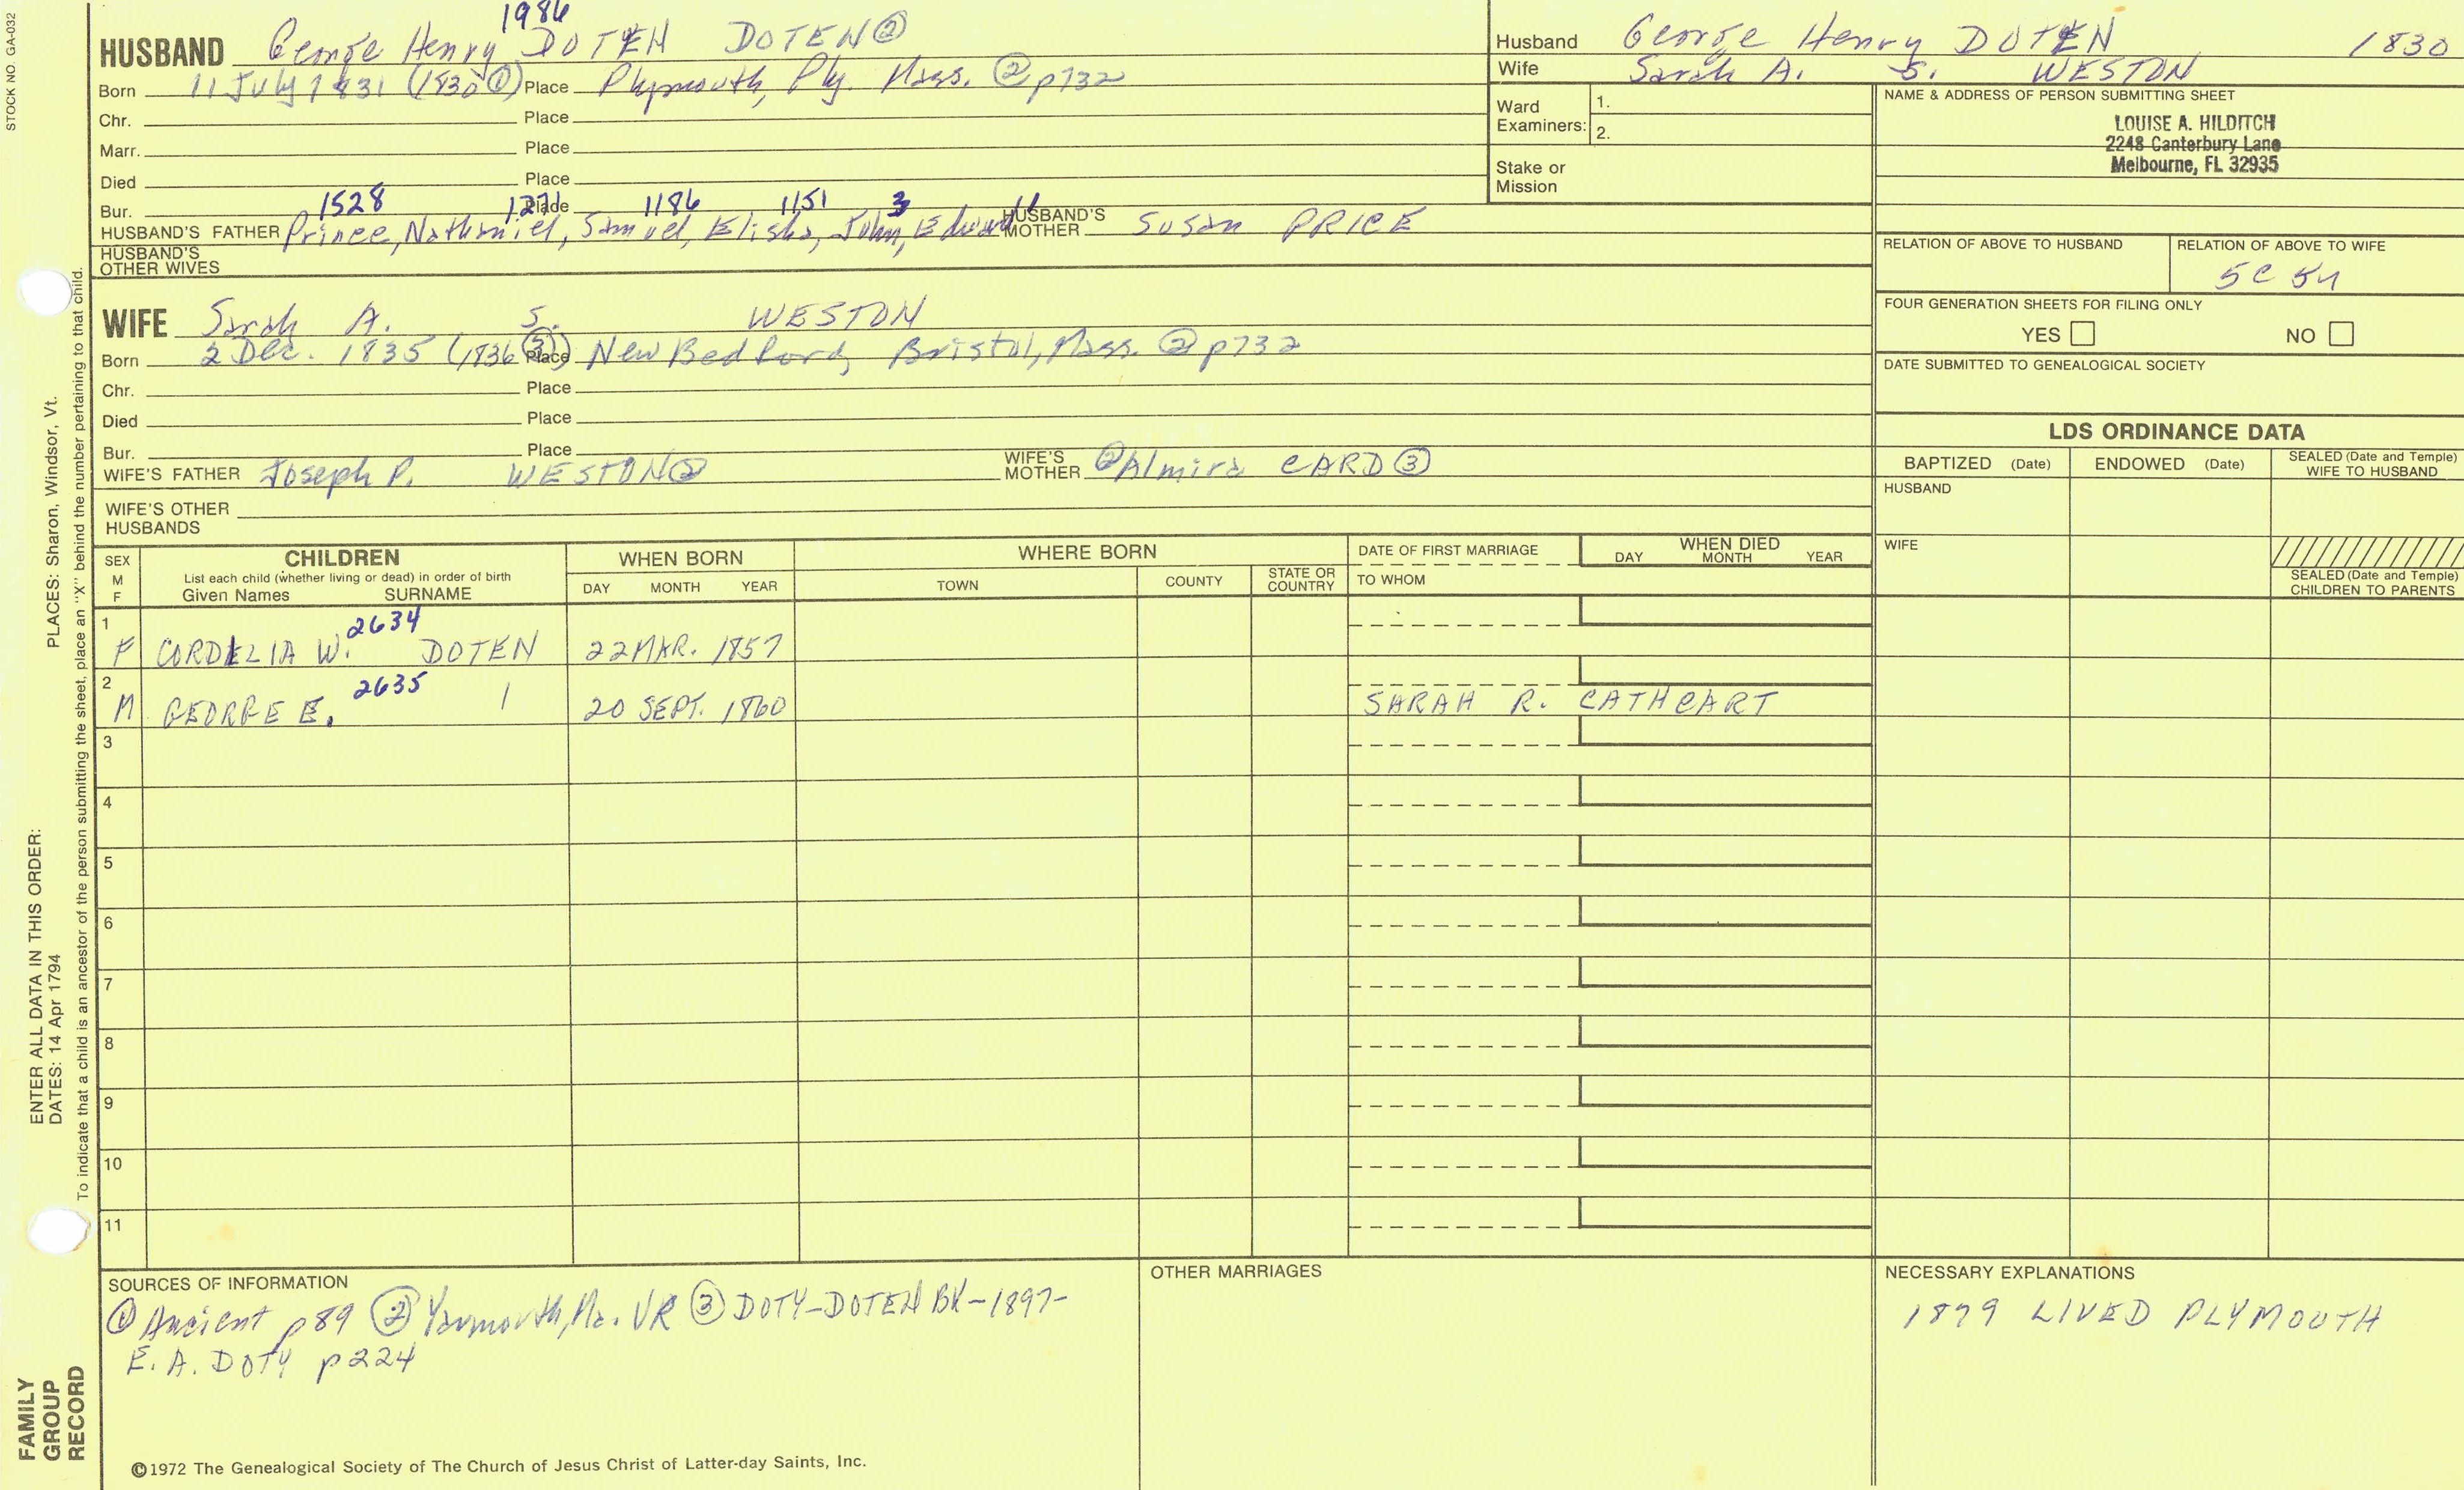 STOCK NO. GA-032
1986
HUSBAND George Henry DOTEN DOTEN②
Born 11 July 1831 (1830①) Place Plymouth, Ply. Mass. ② p732
Chr. Place
Marr. Place
Died Place
Bur. Place
1528 1271 1186 1151 3 11
HUSBAND'S FATHER Prince, Nathaniel, Samuel, Elisha, John, Edward HUSBAND'S MOTHER Susan PRICE
HUSBAND'S OTHER WIVES
WIFE Sarah A. S. WESTON
Born 2 Dec. 1835 (1836③) Place New Bedford, Bristol, Mass. ② p732
Chr. Place
Died Place
Bur. Place
WIFE'S FATHER Joseph P. WESTON② WIFE'S MOTHER ② Almira CARD③
WIFE'S OTHER HUSBANDS
Husband George Henry DOTEN 1830
Wife Sarah A. S. WESTON
Ward Examiners: 1.
2.
Stake or Mission
NAME & ADDRESS OF PERSON SUBMITTING SHEET
LOUISE A. HILDITCH
2248 Canterbury Lane
Melbourne, FL 32935
RELATION OF ABOVE TO HUSBAND RELATION OF ABOVE TO WIFE
5C
FOUR GENERATION SHEETS FOR FILING ONLY
YES NO
DATE SUBMITTED TO GENEALOGICAL SOCIETY
LDS ORDINANCE DATA
BAPTIZED (Date) ENDOWED (Date) SEALED (Date and Temple) WIFE TO HUSBAND
HUSBAND
WIFE
SEALED (Date and Temple) CHILDREN TO PARENTS
SEX M F CHILDREN WHEN BORN WHERE BORN DATE OF FIRST MARRIAGE WHEN DIED
List each child (whether living or dead) in order of birth
Given Names SURNAME DAY MONTH YEAR TOWN COUNTY STATE OR COUNTRY TO WHOM DAY MONTH YEAR
1 2634
F CORDELIA W. DOTEN 22 MAR. 1857
2 2635
M GEORGE E. | 20 SEPT. 1860 SARAH R. CATHCART
3
4
5
6
7
8
9
10
11
SOURCES OF INFORMATION
① Ancient p89 ② Yarmouth, Ma. VR ③ DOTY-DOTEN BK-1897-
E. A. DOTY p224
OTHER MARRIAGES
NECESSARY EXPLANATIONS
1879 LIVED PLYMOUTH
©1972 The Genealogical Society of The Church of Jesus Christ of Latter-day Saints, Inc.
FAMILY GROUP RECORD
ENTER ALL DATA IN THIS ORDER:
DATES: 14 Apr 1794
PLACES: Sharon, Windsor, Vt.
To indicate that a child is an ancestor of the person submitting the sheet, place an "X" behind the number pertaining to that child.